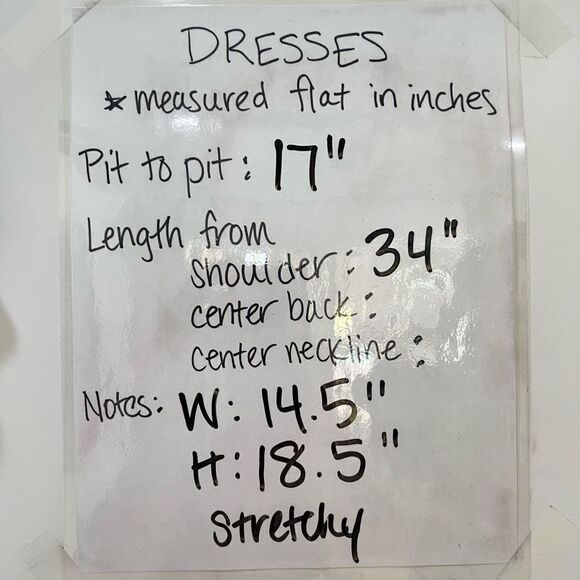 DRESSES
* measured flat in inches
Pit to pit: 17"
Length from
shoulder: 34"
center back:
center neckline:
Notes: W: 14.5"
H: 18.5"
Stretchy